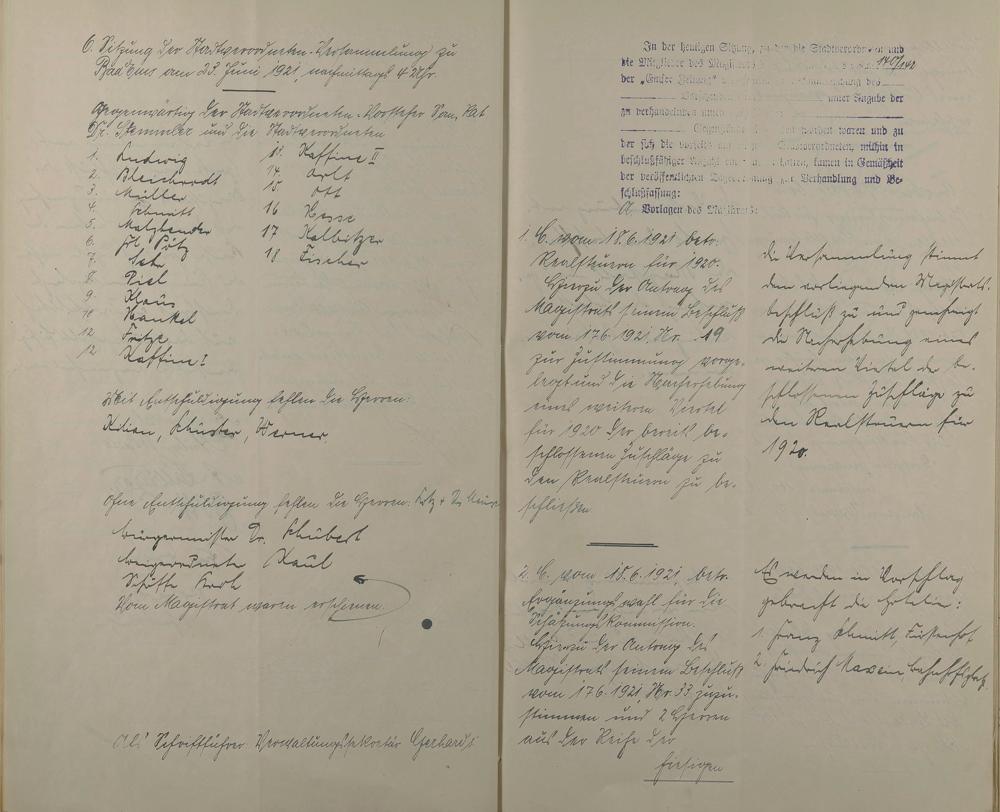 6. Sitzung der Stadtverordneten-Versammlung zu
Bad Ems am 23. Juni 1921 nachmittags 4 Uhr.
Gegenwärtig der Stadtverordneten-Vorsteher San. Rat
Dr. Stemmler und die Stadtverordneten
1. Ludwig
2. Bleichrodt
3. Müller
4. Schmitt
5. Malzbender
6.
7.
8. Piel
9. Klaus
10 Kunkel
12 Fritze
12 Kaffine I
13. Kaffine II
14. Arlt
15 Ott
16 Hesse
17 Kalbitzer
18. Fischer
Mit Entschuldigung fehlen die Herren:
Kilian, Schuster, Werner.
Ohne Entschuldigung fehlen die Herren:
Bürgermeister Dr. Schubert
Beigeordnete Kaul
Schöffe
Vom Magistrat waren erschienen
Als Schriftführer: Verwaltungssekretär Gerhardt
140/142
In der heutigen Sitzung, zu der die Stadtverordneten und
die Mitglieder des Magistrats
der „Emser Zeitung"
unter Angabe der
zu verhandelnden
worden waren und zu
der sich die Stadtverordneten, mithin in
beschlußfähiger Anzahl hatten, kamen in Gemäßheit
der veröffentlichten Tagesordnung zur Verhandlung und Be-
schlußfassung:
A. Vorlagen des Magistrats:
1. C. vom 18.6.1921 betr.
Realsteuern für 1920.
Hierzu der Antrag des
Magistrats seinem Beschluß
vom 17.6.1921 Nr. 19
zur Zustimmung vorge-
legt und die Nacherhebung
eines weiteren Viertel
für 1920 der bereits be-
schlossenen Zuschläge zu
den Realsteuern zu be-
schließen
Die Versammlung stimmt
dem vorliegenden Magistrats-
beschluß zu und genehmigt
die Nacherhebung eines
weiteren Viertel der be-
schlossenen Zuschläge zu
den Realsteuern für
1920.
2. C. vom 18.6.1921 betr.
Ergänzungswahl für die
Schätzungskommission.
Hierzu der Antrag des
Magistrats seinem Beschluß
vom 17.6.1921 Nr. 33 zuzu-
stimmen und 2 Herren
aus der Reihe der
hiesigen
Es werden in Vorschlag
gebracht die Hotelier:
1. Franz Schmitt, Fürstenhof
2. Friedrich Bahnhofsplatz